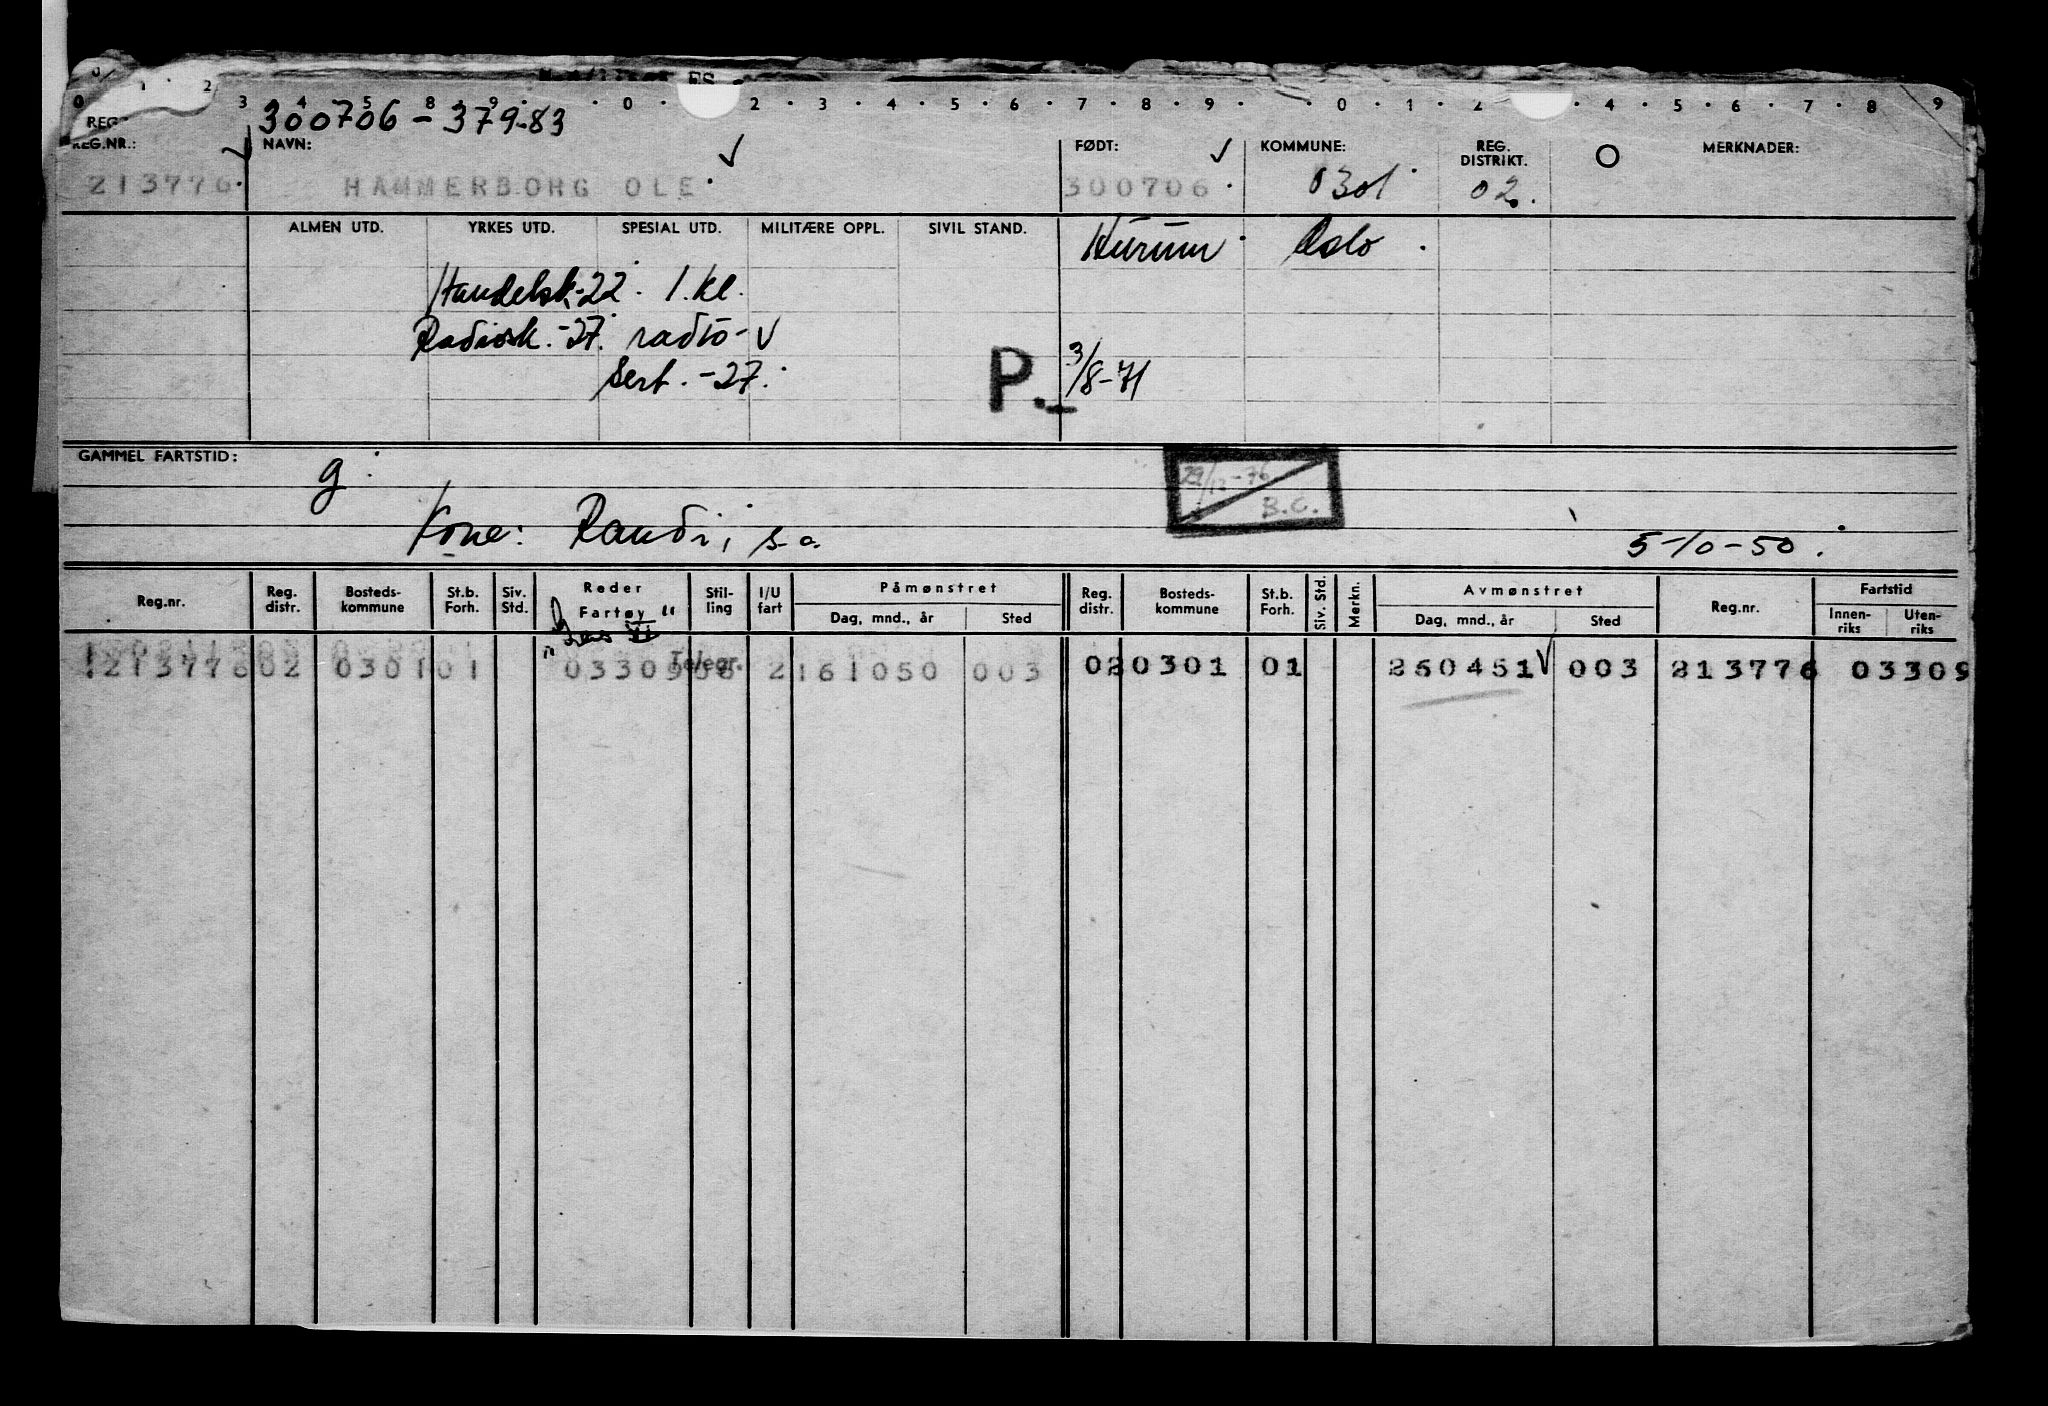 0 1 2 3 4 5 8 9 0 2 3 4 5 6 7 8 9 0 1 2 4 5 6 7 8 9
300706 - 379-83
REG.NR.: NAVN: FØDT: KOMMUNE: REG. DISTRIKT. O MERKNADER:
213776. HAMMERBORG OLE. 300706. 0301 02.
ALMEN UTD. YRKES UTD. SPESIAL UTD. MILITÆRE OPPL. SIVIL STAND. Hurum Oslo
Handelsk-22. 1. kl.
Radiosk. -27. radio-
Sert. -27. P. 3/8-71
GAMMEL FARTSTID: g.
29/12-76
B.C.
Kone: Randi, s.a. 5-10-50.
Reg.nr. Reg. distr. Bosteds-kommune St.b. Forh. Siv. Std. Reder Fartøy Stil-ling I/U fart Påmønstret Reg. distr. Bosteds-kommune St.b. Forh. Siv. Std. Merkn. Avmønstret Reg.nr. Fartstid
Dag, mnd., år Sted Dag, mnd., år Sted Innen-riks Uten-riks
213776 02 0301 01 03309 Telegr. 2 161050 003 02 0301 01 250451 003 213776 03309